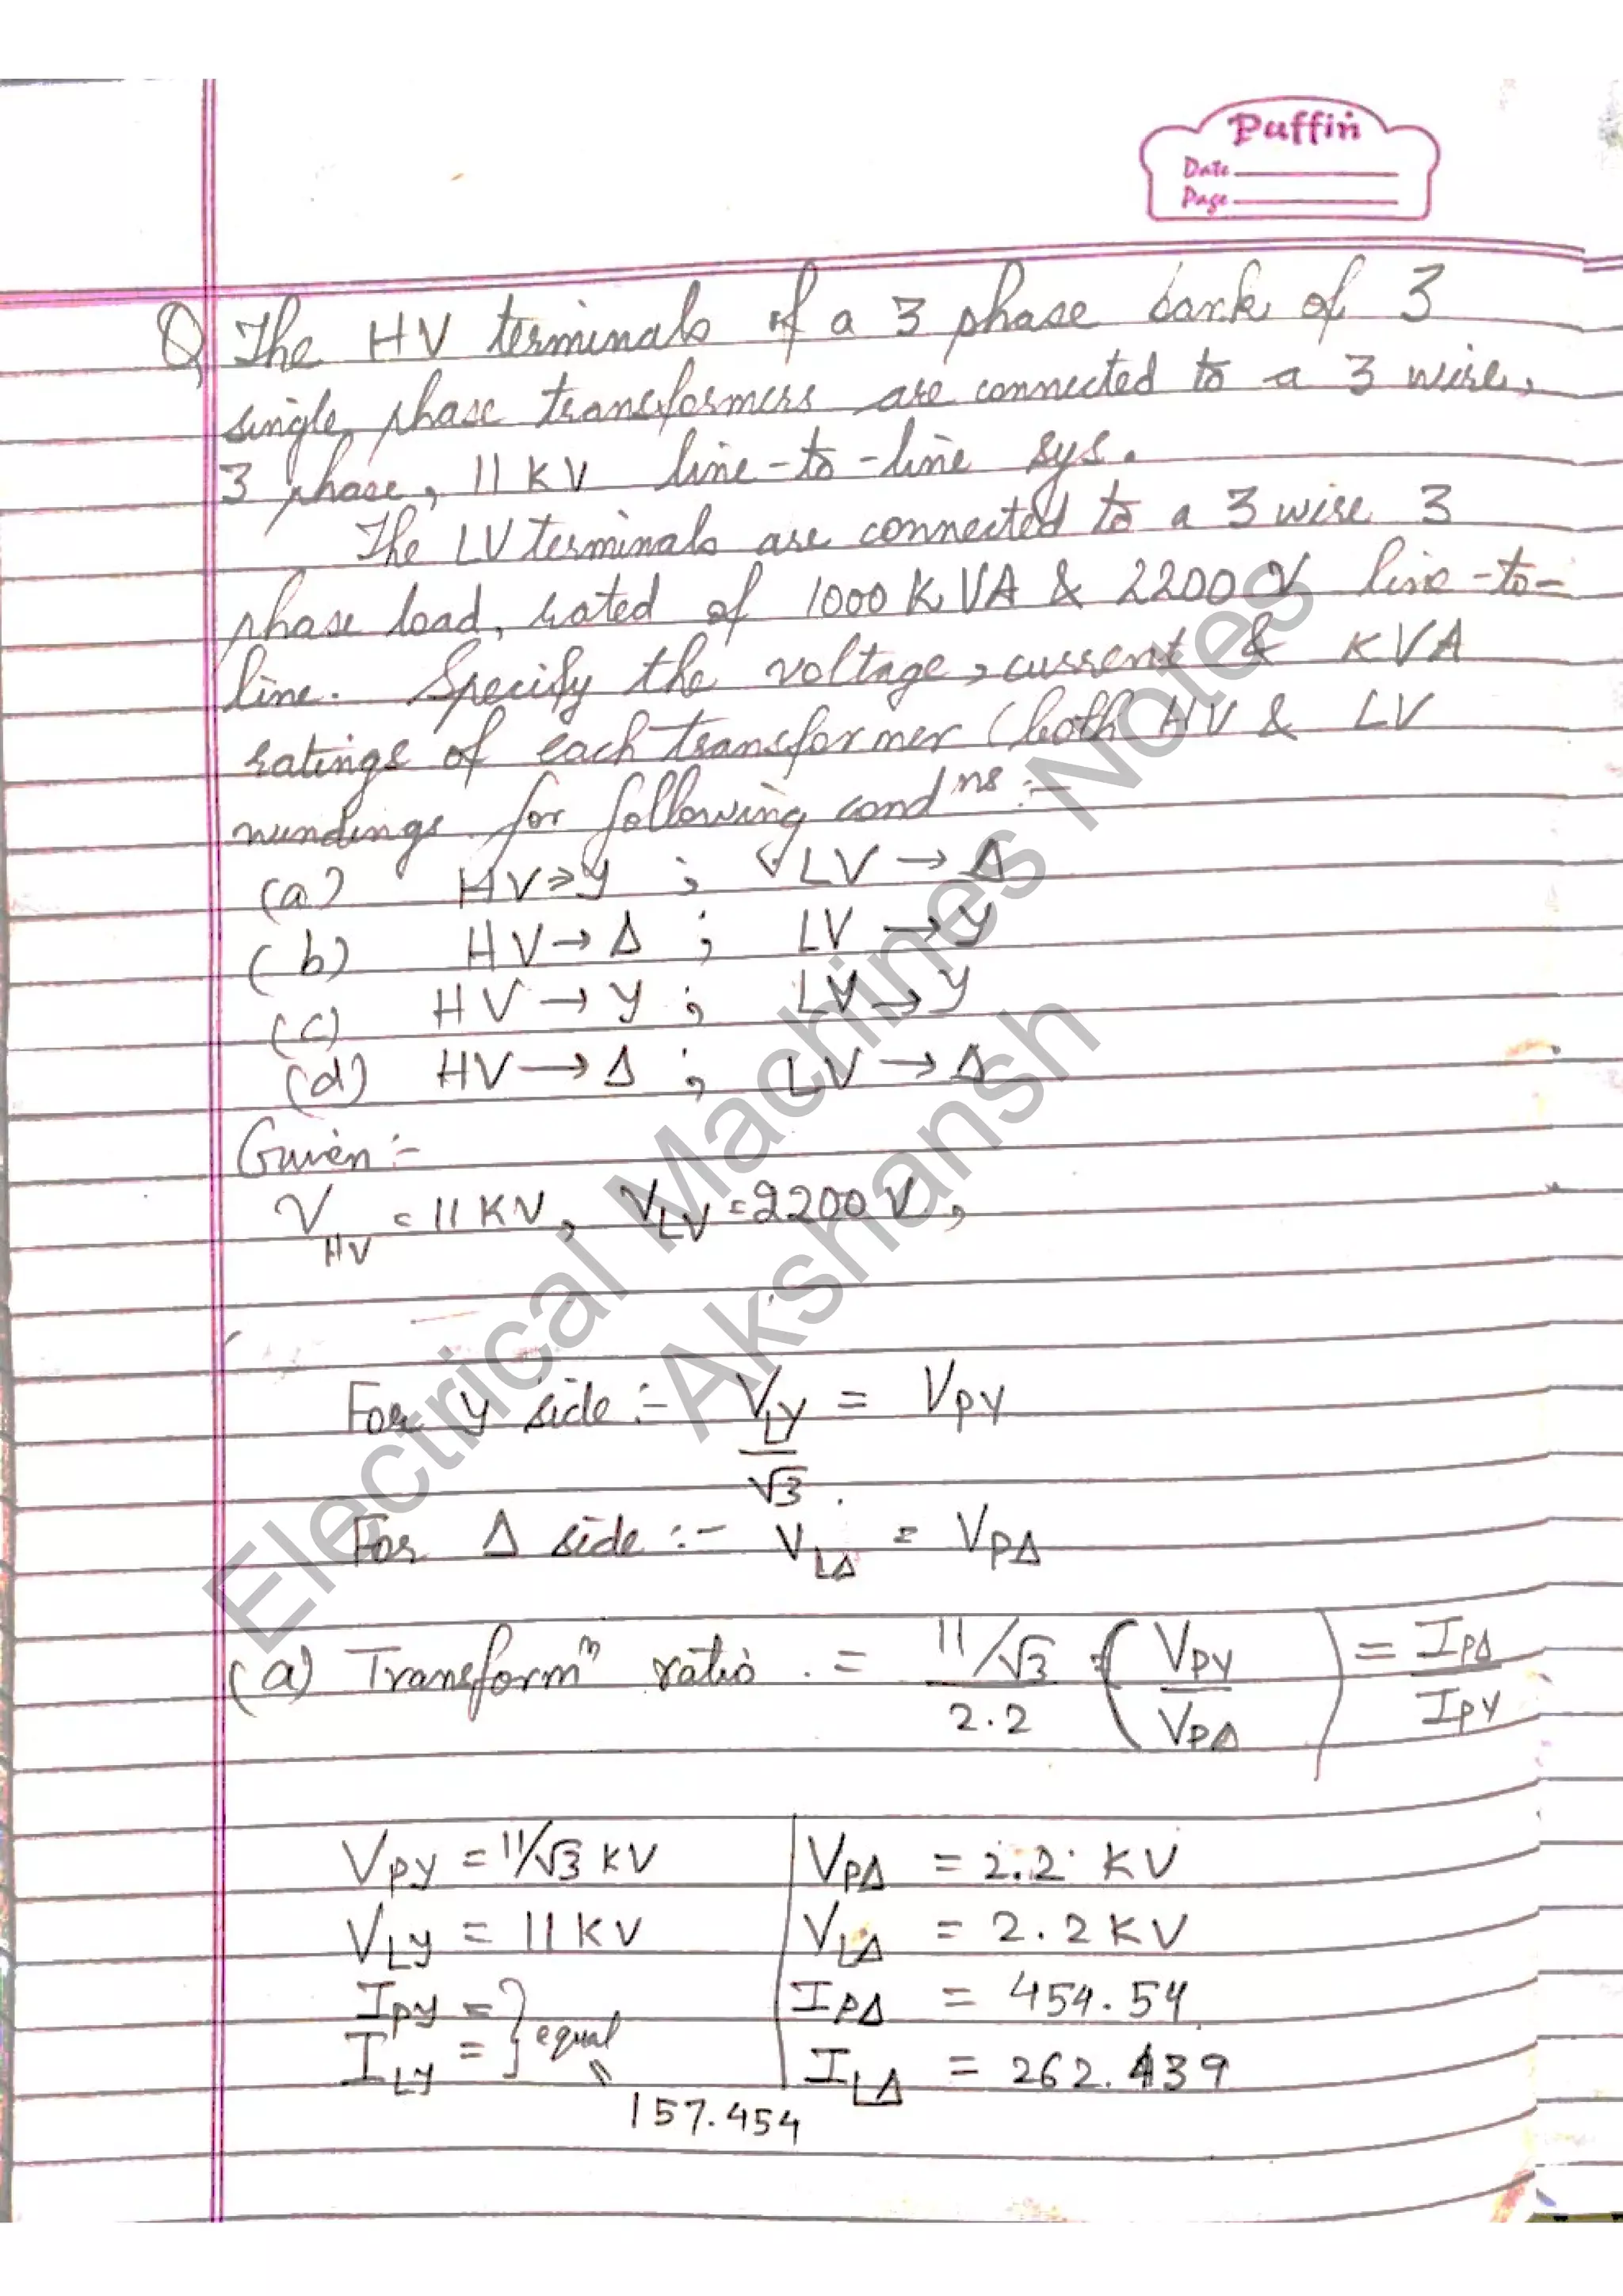 Puffin
Date
Page
Q The HV terminals of a 3 phase bank of 3
single phase transformers are connected to a 3 wire,
3 phase, 11 KV line-to-line sys.
The LV terminals are connected to a 3 wire 3
phase load, rated of 1000 KVA & 2200 V line-to-
line. Specify the voltage, current & KVA
ratings of each transformer (both HV & LV
windings for following condns :-
(a) HV → Y ; LV → Δ
(b) HV → Δ ; LV → Y
(c) HV → Y ; LV → Y
(d) HV → Δ ; LV → Δ
Given :-
V_HV = 11 KV, V_LV = 2200 V,
For Y side :- V_LY/√3 = V_PY
For Δ side :- V_LΔ = V_PΔ
(a) Transformn ratio = (11/√3)/2.2 = (V_PY/V_PΔ) = I_PΔ/I_PY
V_PY = 11/√3 KV V_PΔ = 2.2 KV
V_LY = 11 KV V_LΔ = 2.2 KV
I_PY = } equal I_PΔ = 454.54
I_LY = I_LΔ = 262.439
157.454
Electrical Machines Notes
Akshansh